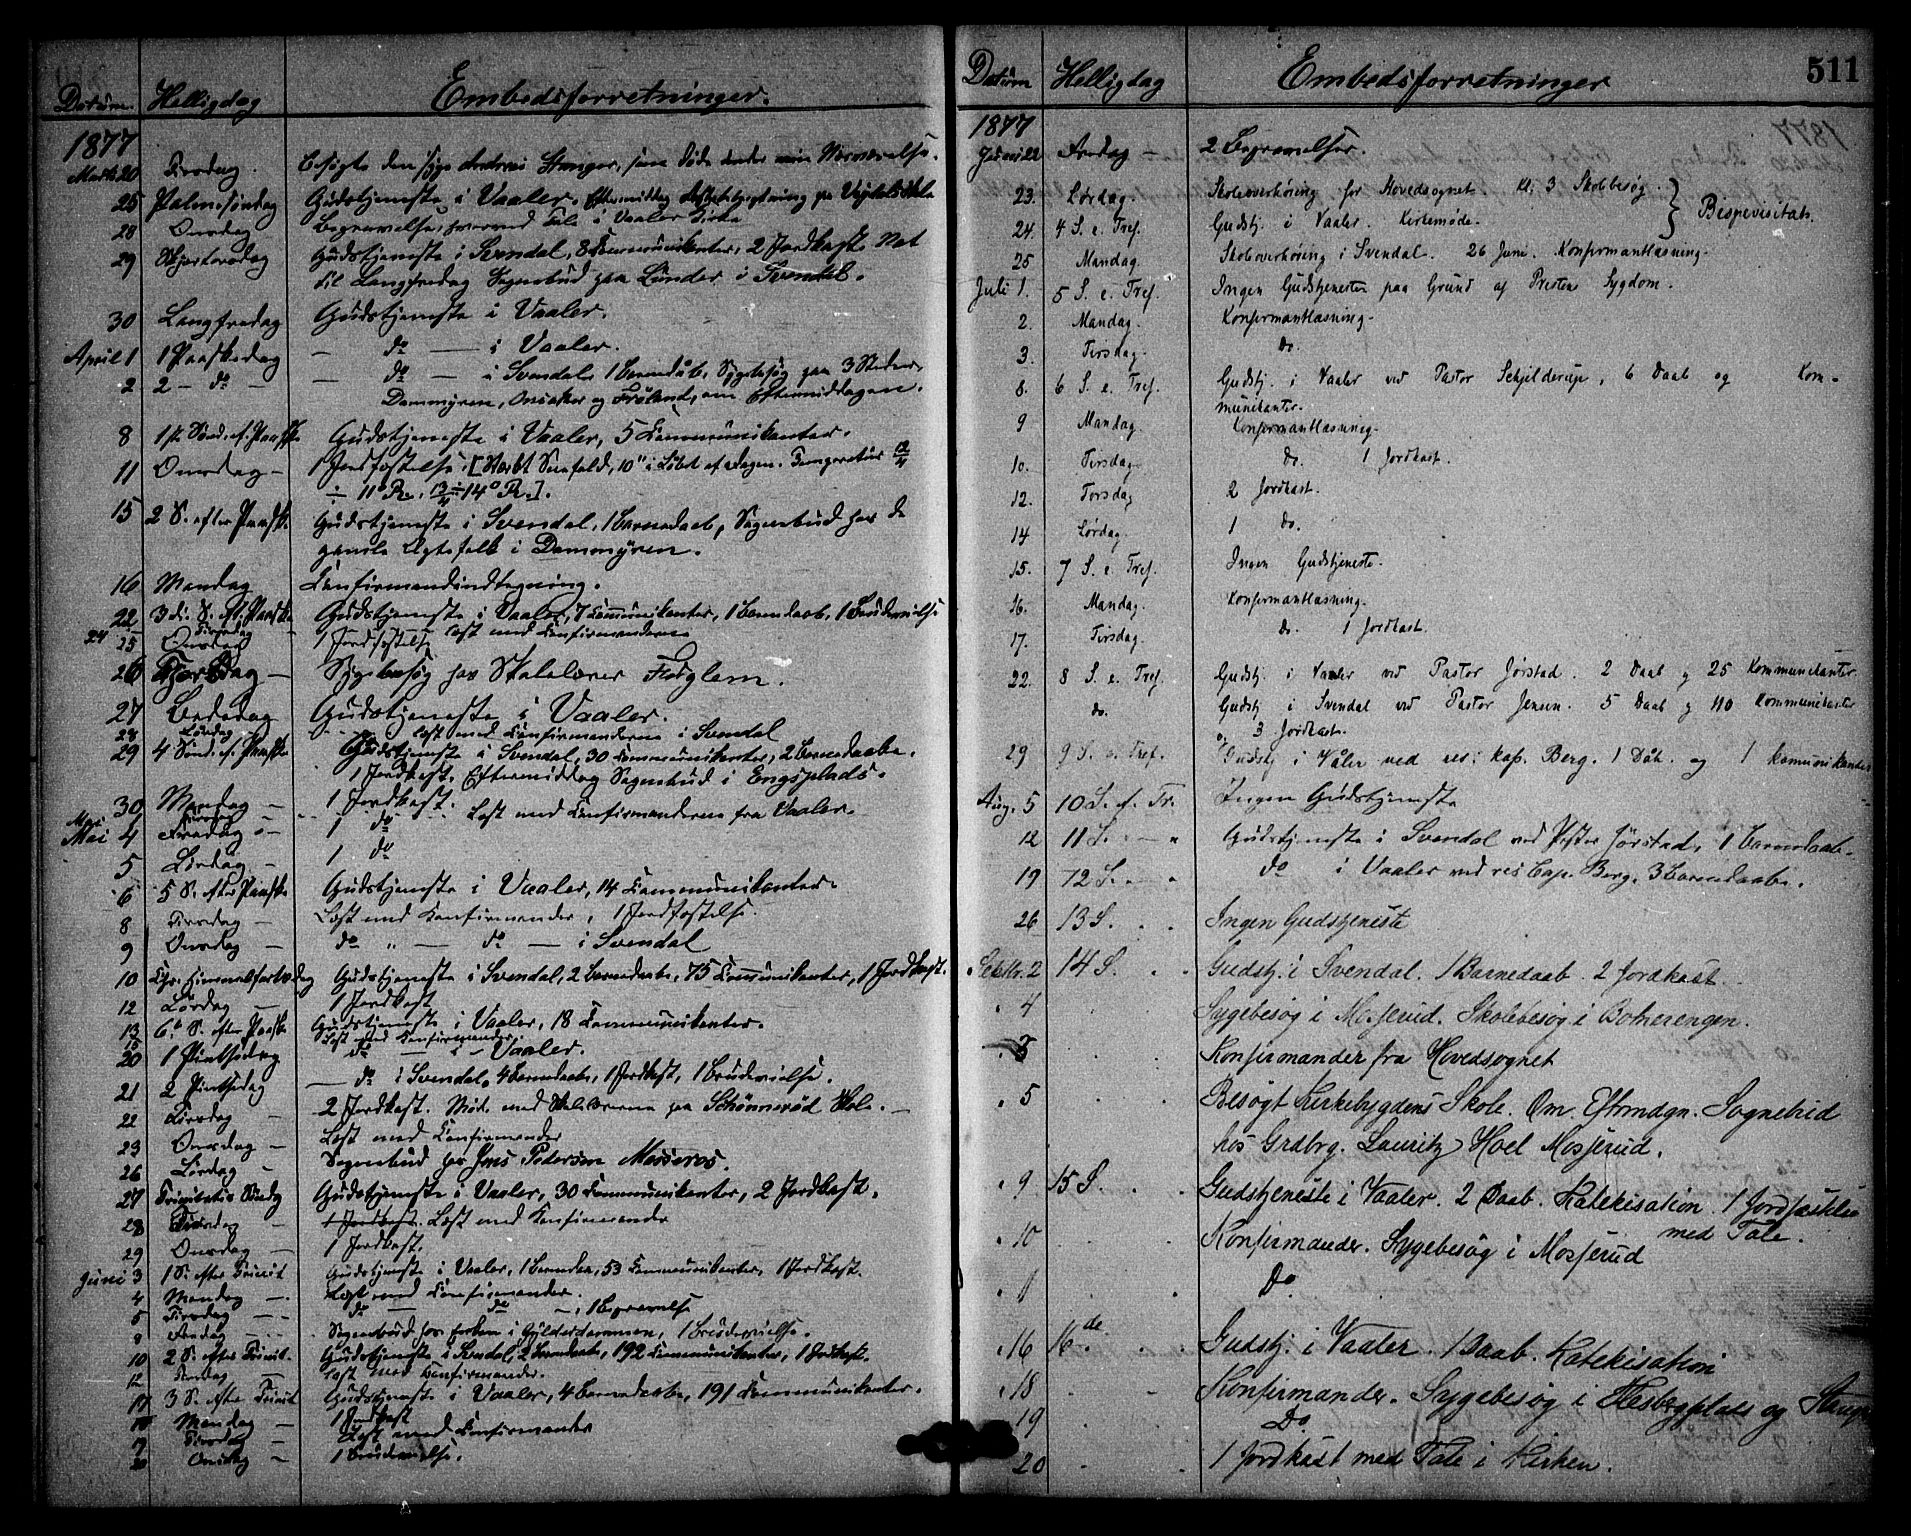 Datum. Helligdag Embedsforretninger.
1877
Marts 20 Tirsdag. Besøgte den syge Andreas Stanger, som døde under min Nærværelse.
25 Palmesøndag Gudstjeneste i Vaaler. Eftermiddag
28 Onsdag Begravelse, hvorved Tale i Vaaler Kirke
29 Skjærtorsdag Gudstjeneste i Svendal, 8 Communikanter, 2 Jordkast. Nat
til Langfredag Sognebud paa Lunder i Svendal.
30 Langfredag Gudstjeneste i Vaaler.
April 1 1 Paaskedag — do — i Vaaler.
2 2 - do - — do — i Svendal, 1 Barnedåb, Sygebesøg paa 3 Steder,
Dammyren, Onsaker og Frøland, om Eftermiddagen.
8 1ste Sønd. ef. Paaske Gudstjeneste i Vaaler, 5 Communikanter.
11 Onsdag — 1 Jordfæstelse. [Stærkt Snefald, 10" i Løbet af dagen. Temperatur 12/4
÷ 11° R., 13/4 ÷ 14° R.].
15 2 S. efter Paaske Gudstjeneste i Svendal, 1 Barnedaab, Sognebud hos de
gamle Ægtefolk i Dammyren.
16 Mandag Confirmandindtegning.
22 3die S. ef. Paaske Gudstjeneste i Vaaler, 7 Communikanter, 1 Barnedaab, 1 Brudevielse
24 Tirsdag — Læst med Confirmanderne
25 Onsdag 1 Jordfæstelse
26 Torsdag — Sygebesøg hos Skolelærer Fuglem.
27 Bededag Gudstjeneste i Vaaler.
28 Lørdag Læst med Confirmanderne i Svendal
29 4 Sønd. ef. Paaske Gudstjeneste i Svendal, 30 Communikanter, 2 Barnedaabe.
1 Jordkast. Eftermiddag Sognebud i Engsplads.
30 Mandag — 1 Jordkast.
Mai Tirsdag Læst med Confirmanderne fra Vaaler.
Mai 4 Fredag — 1 do
5 Lørdag — 1 do
6 5 S. efter Paaske Gudstjeneste i Vaaler, 14 Communikanter.
8 Tirsdag — Læst med Konfirmander, 1 Jordfæstelse.
9 Onsdag — do " — do — i Svendal
10 Chr. Himmelfartsdag Gudstjeneste i Svendal, 2 Barnedaabe, 75 Communikanter, 1 Jordkast.
12 Lørdag — 1 Jordkast
13 6te S. efter Paaske Gudstjeneste i Vaaler, 18 Communikanter.
15 Læst med Konfirmander
20 1 Pintsedag do — - Vaaler.
21 2 Pintsedag — do i Svendal, 4 Barnedaabe, 1 Jordkast, 1 Brudevielse.
22 Tirsdag — 2 Jordkast. Møde med Skolelærerne paa Schönnerød Skole. —
23 Onsdag — Læst med Confirmander
26 Lørdag - Sognebud hos Jens Petersen Masseros.
27 Trinitatis Søndg Gudstjeneste i Vaaler, 30 Communikanter, 2 Jordkast.
28 — 1 Jordkast. Læst med Konfirmander
29 Onsdag — 1 Jordkast.
Juni 3 1 S. efter Trinit Gudstjeneste i Vaaler, 1 Barnedaa, 53 Communikanter, 1 Jordkast.
4 Mandag —. Læst med Confirmander.
5 Tirsdag — - do — do —, 1 Begravelse
8 Fredag - - - Sognebud hos i Gyldersdammen, 1 Brudevielse.
10 2 S. efter Trinit. Gudstjeneste i Svendal, 2 Barnedaabe, 192 Communikanter, 1 Jordkast.
12 Tirsdag — Læst med Konfirmander.
17 3 S. efter Trinit Gudstjeneste i Vaaler, 4 Barnedaabe, 191 Communikanter.
18 Mandag — 1 Jordkast
19 Tirsdag — Læst med Confirmander
20 Onsdag — 1 Brudevielse.
511
Datum Helligdag Embedsforretninger
1877
Juni 22 Fredag — 2 Begravelser.
23. Lørdag. Skoleoverhøring for Hovedsognet Kl. 3 Skolebesøg.
24. 4 S. e. Tref. Gudstj. i Vaaler. Kirkemøde. } Bispevisitats.
25 Mandag. Skoleoverhøring i Svendal. 26 Juni. Konfirmantlæsning.
Juli 1. 5 S. e. Tref. Ingen Gudstjeneste paa Grund af Prestens Sygdom.
2. Mandag. Konfirmantlæsning.
3. Tirsdag. do.
8. 6 S. e. Tref. Gudstj. i Vaaler ved Pastor Schjelderup, 6 Daab og Kom-
munikanter.
9 Mandag. Konfirmantlæsning.
10. Tirsdag. do. 1 Jordkast.
12. Torsdag 2 Jordkast.
14 Lørdag. 1 do.
15. 7 S. e. Tref. Ingen Gudstjeneste.
16. Mandag. Konfirmantlæsning.
17. Tirsdag. do. 1 Jordkast.
22. 8 S. e. Tref. Gudstj. i Vaaler ved Pastor Jørstad. 2 Daab og 25 Kommunikanter
do. Gudstj i Svendal ved Pastor Jensen. 5 Daab og 110 Kommunikanter
og 3 Jordkast.
29 9 S. e. Tref. Gudstj i Våler ved res. kap. Berg. 1 Dåb. og 1 komunikander
Aug. 5 10 S. ef. Tr. Ingen Gudstjeneste
12 11 S. — " Gudstjeneste i Svendal ved Pastor Jørstad, 1 Barnedaab.
19 12 S. — " do i Vaaler ved res Cap. Berg. 3 Barnedaabe.
26 13 S. . . Ingen Gudstjeneste
Septbr. 2 14 S. . . Gudstj. i Svendal. 1 Barnedaab. 2 Jordkast.
" 4 . . Sygebesøg i Mosjerud. Skolebesøg i Botnerengen.
" 5 . . Konfirmander fra Hovedsognet
" 5 . . Besøgt Kirkebygdens Skole. Om Eftrmdgn. Sognebud
hos Grdbrg. Lauritz Hoel Mosjerud.
" 9 15 S. . . Gudstjeneste i Vaaler. 2 Daab. Katekisation. 1 Jordfæstelse
med Tale.
" 10 . . Konfirmander. Sygebesøg i Mosjerud
" 11 Do
" 16 16 de. . . Gudstj. i Vaaler. 1 Daab. Katekisation
" 18 . . Konfirmander. Sygebesøg i Hesbergplats og
" 19 Do
20 . . 1 Jordkast med Tale i Kirken.